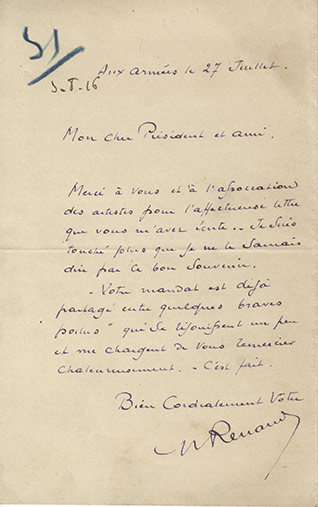 51
Aux armées le 27 Juillet.
3-8-16
Mon cher Président et ami.
Merci à vous et à l'association
des artistes pour l'affectueuse lettre
que vous m'avez écrite.. Je suis
touché plus que je ne le saurais
dire par ce bon souvenir.
- Votre mandat est déjà
partagé entre quelques braves
poilus" qui se réjouissent un peu
et me chargent de vous remercier
chaleureusement. - C'est fait.
Bien Cordialement Votre
M Renaud